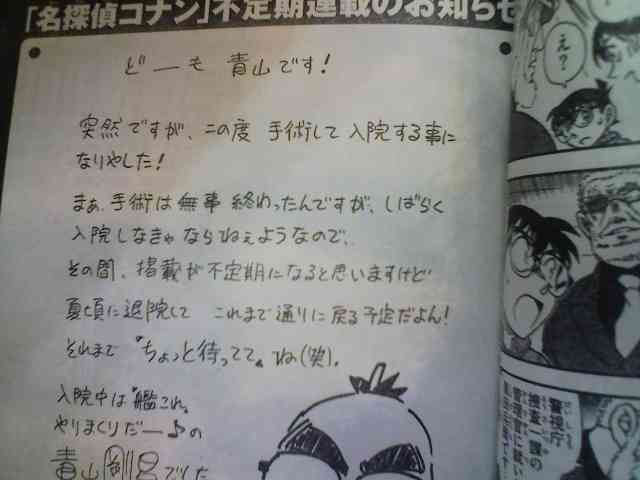 「名探偵コナン」不定期連載のお知らせ
どーも 青山です!
突然ですが、この度 手術して 入院する事に
なりやした!
まぁ、手術は無事 終わったんですが、しばらく
入院しなきゃならねぇようなので、
その間、掲載が不定期になると思いますけど
夏頃に退院して これまで通りに戻る予定だよん!
それまで〝ちょっと待ってて〟ね(笑)。
入院中は〝艦これ〟
やりまくりだー♪の
青山剛昌でした
え?
警視庁
捜査一課の